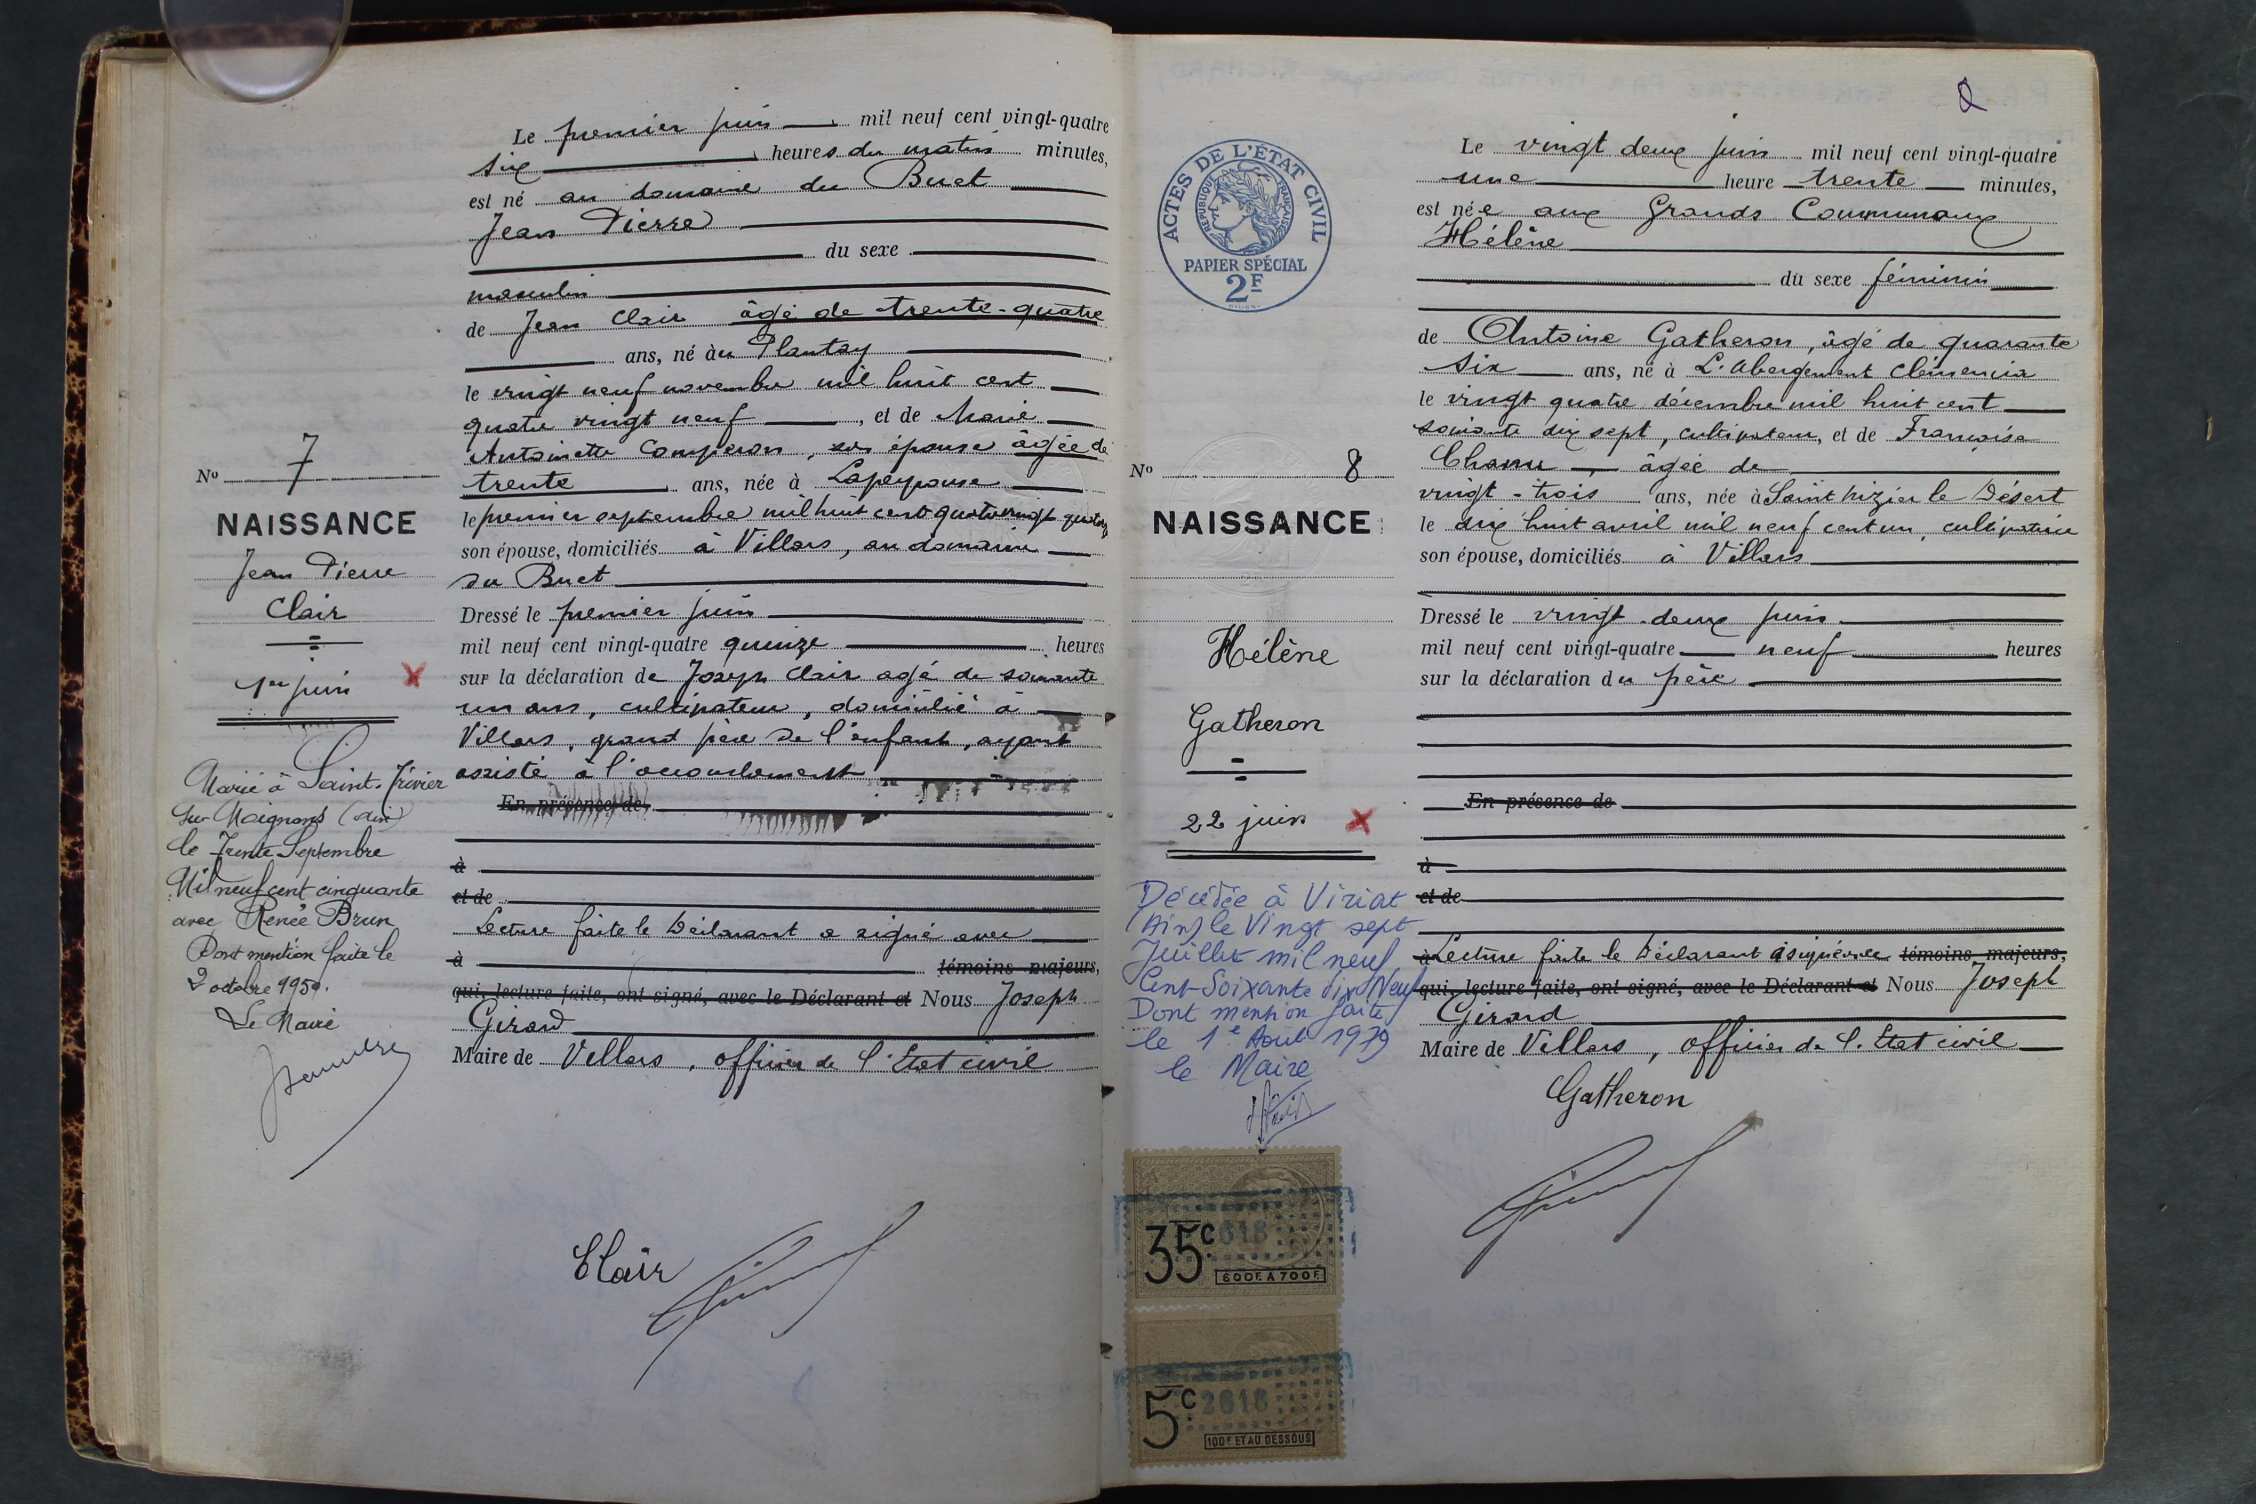 Le premier juin mil neuf cent vingt-quatre
six heures du matin minutes,
est né au domaine du Buet
Jean Pierre
du sexe
masculin
de Jean Clair âgé de trente-quatre
ans, né au Plantay
le vingt neuf novembre mil huit cent
quatre vingt neuf, et de Marie
Antoinette Comperon, son épouse âgée de
trente ans, née à Lapeyrouse
le premier septembre mil huit cent quatre vingt quatorze
son épouse, domiciliés à Villars, au domaine
du Buet
Dressé le premier juin
mil neuf cent vingt-quatre quinze heures
sur la déclaration de Joseph Clair agé de soixante
un ans, cultivateur, domicilié à
Villars, grand père de l'enfant, ayant
assisté à l'accouchement
En présence de
à
et de
Lecture faite le Déclarant a signé avec
à témoins majeurs,
qui, lecture faite, ont signé, avec le Déclarant et Nous Joseph
Girard
Maire de Villars, officier de l'Etat civil
Clair
No 7
NAISSANCE
Jean Pierre
Clair
1er juin
Marié à Saint-Trivier
sur Moignans (ain)
le Trente Septembre
Mil neuf cent cinquante
avec Renée Brun
Dont mention faite le
2 octobre 1950.
Le Maire
2
ACTES DE L'ÉTAT CIVIL
RÉPUBLIQUE FRANÇAISE
PAPIER SPÉCIAL
2F
No 8
NAISSANCE
Hélène
Gatheron
22 juin
Décédée à Viriat
(Ain) le Vingt sept
Juillet mil neuf
Cent Soixante dix Neuf
Dont mention faite
le 1e Aout 1979
le Maire
35c
618
600F. A 700F.
5c
2618
100F ET AU DESSOUS
Le vingt deux juin mil neuf cent vingt-quatre
une heure trente minutes,
est née aux Grands Communaux
Hélène
du sexe féminin
de Antoine Gatheron, âgé de quarante
six ans, né à L'Abergement Clémencia
le vingt quatre décembre mil huit cent
soixante dix sept, cultivateur, et de Françoise
Chanu, âgée de
vingt-trois ans, née à Saint Nizier le Désert
le dix huit avril mil neuf cent un, cultivatrice
son épouse, domiciliés à Villars
Dressé le vingt-deux juin
mil neuf cent vingt-quatre neuf heures
sur la déclaration du père
En présence de
à
et de
à Lecture faite le Déclarant a signé avec témoins majeurs,
qui, lecture faite, ont signé, avec le Déclarant et Nous Joseph
Girard
Maire de Villars, officier de l'Etat civil
Gatheron